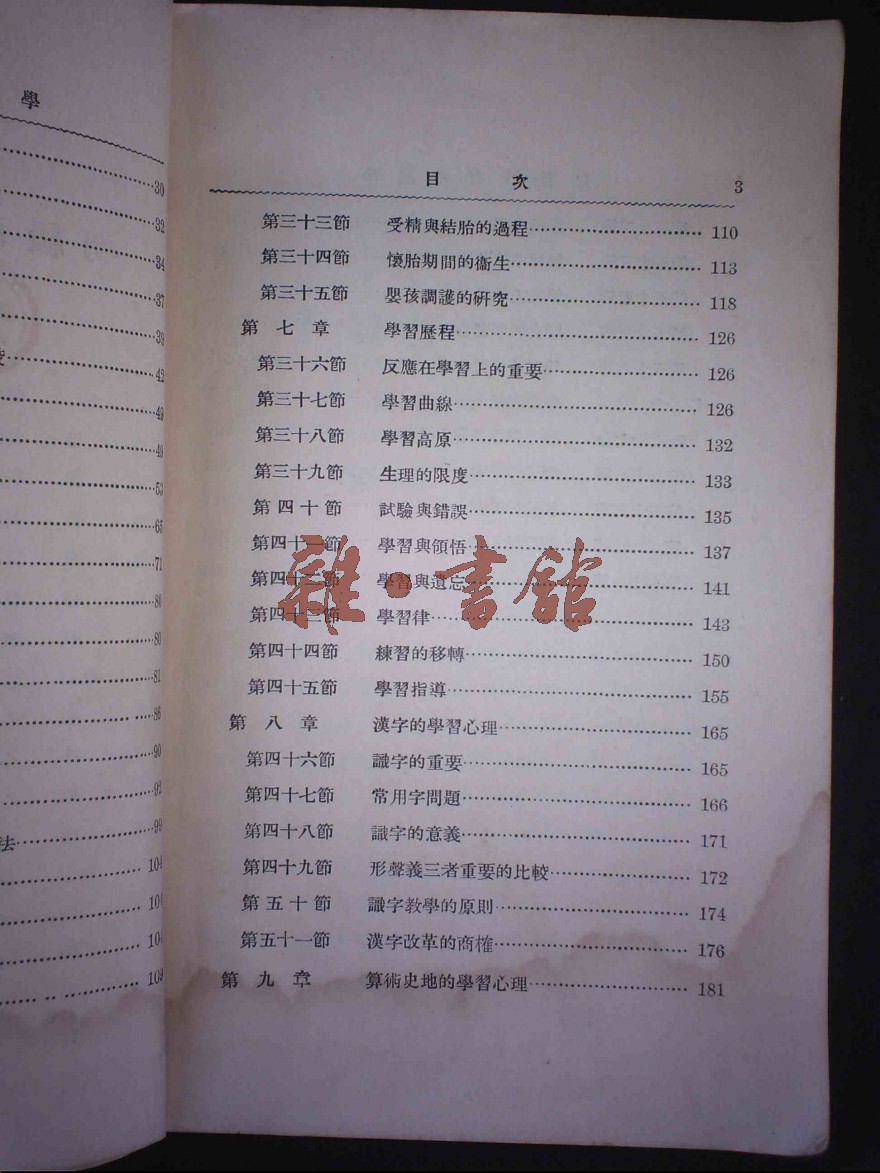 學
30
32
34
37
39
42
49
49
53
65
71
80
80
81
86
90
92
法 99
104
104
109
目 次 3
第三十三節 受精與結胎的過程 110
第三十四節 懷胎期間的衞生 113
第三十五節 嬰孩調護的研究 118
第七章 學習歷程 126
第三十六節 反應在學習上的重要 126
第三十七節 學習曲線 126
第三十八節 學習高原 132
第三十九節 生理的限度 133
第四十節 試驗與錯誤 135
第四十一節 學習與領悟 137
第四十二節 學習與遺忘 141
第四十三節 學習律 143
第四十四節 練習的移轉 150
第四十五節 學習指導 155
第八章 漢字的學習心理 165
第四十六節 識字的重要 165
第四十七節 常用字問題 166
第四十八節 識字的意義 171
第四十九節 形聲義三者重要的比較 172
第五十節 識字教學的原則 174
第五十一節 漢字改革的商榷 176
第九章 算術史地的學習心理 181
雜·書館